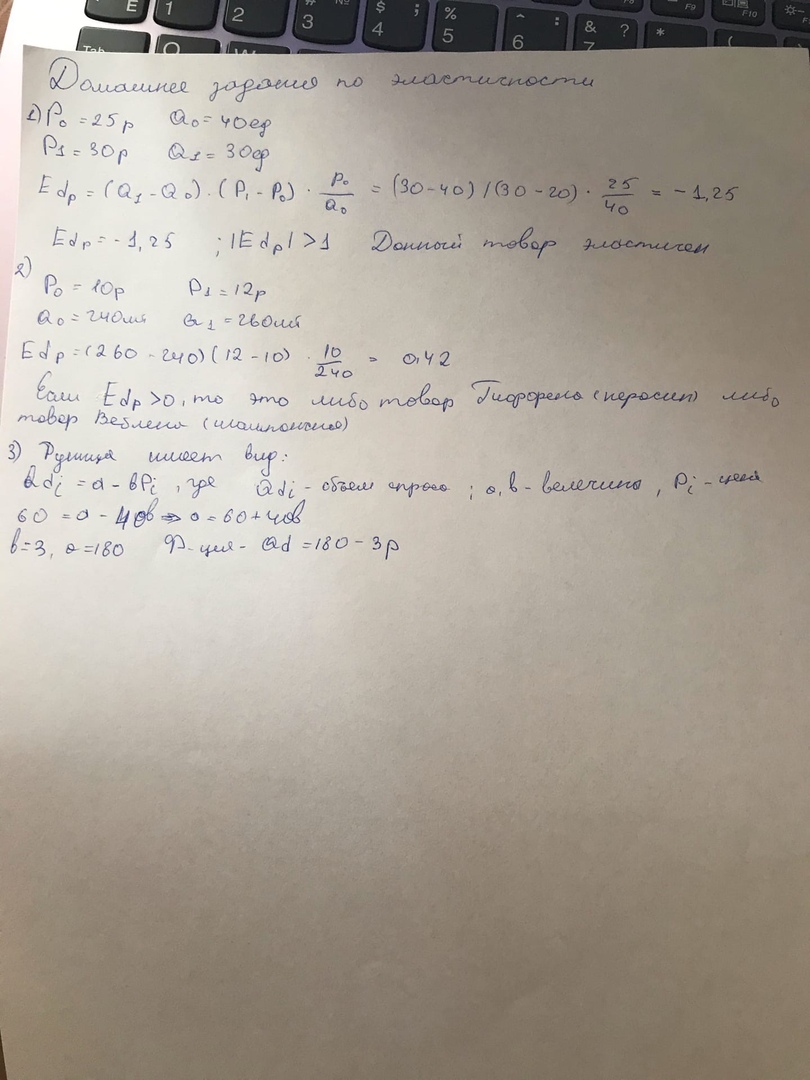 E 1 2 3 № $ 4 ; % 5 ^ : 6 & ? 7 * ( F9 F10
Tab Q W
Домашнее задания по эластичности
1) P₀ = 25р Q₀ = 40ед
P1 = 30р Q1 = 30ед
Edp = (Q1 - Q₀) · (P1 - P₀) · P₀/Q₀ = (30-40) / (30-20) · 25/40 = -1,25
Edp = -1,25 ; |Edp| > 1 Данный товар эластичен
2)
P₀ = 10р P1 = 12р
Q₀ = 240мл Q1 = 260мл
Edp = (260 - 240) (12 - 10) · 10/240 = 0,42
Если Edp > 0, то это либо товар Гиффрена (керосин) либо
товар Веблена (шампанское)
3) Функция имеет вид:
Qdi = a - bPi , где Qdi - объем спроса ; a, b - величина , Pi - цена
60 = a - 40b => a = 60 + 40b
b = 3, a = 180 Ф-ция - Qd = 180 - 3p